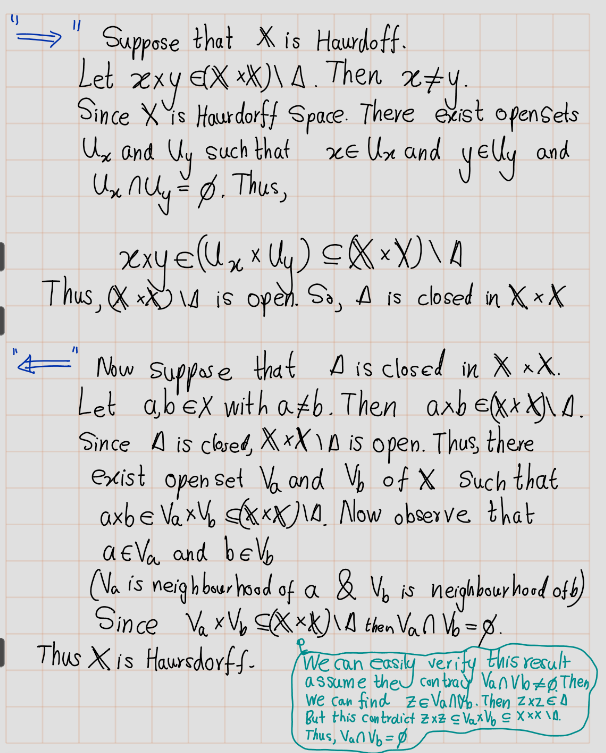 "⟹" Suppose that X is Haurdoff.
Let x×y ∈(X×X)\Δ. Then x≠y.
Since X is Haurdorff Space. There exist open sets
Ux and Uy such that x∈Ux and y∈Uy and
Ux∩Uy=∅. Thus,
x×y∈(Ux×Uy)⊆(X×X)\Δ
Thus, (X×X)\Δ is open. So, Δ is closed in X×X
"⟸" Now suppose that Δ is closed in X×X.
Let a,b∈X with a≠b. Then a×b∈(X×X)\Δ.
Since Δ is closed, X×X\Δ is open. Thus, there
exist open set Va and Vb of X Such that
a×b∈Va×Vb⊆(X×X)\Δ. Now observe that
a∈Va and b∈Vb
(Va is neighbourhood of a & Vb is neighbourhood of b)
Since Va×Vb⊆(X×X)\Δ then Va∩Vb=∅.
Thus X is Haursdorff.
We can easily verify this result
assume the contray Va∩Vb≠∅. Then
We can find z∈Va∩Vb. Then z×z∈Δ
But this contrdict z×z⊆Va×Vb⊆X×X\Δ.
Thus, Va∩Vb=∅